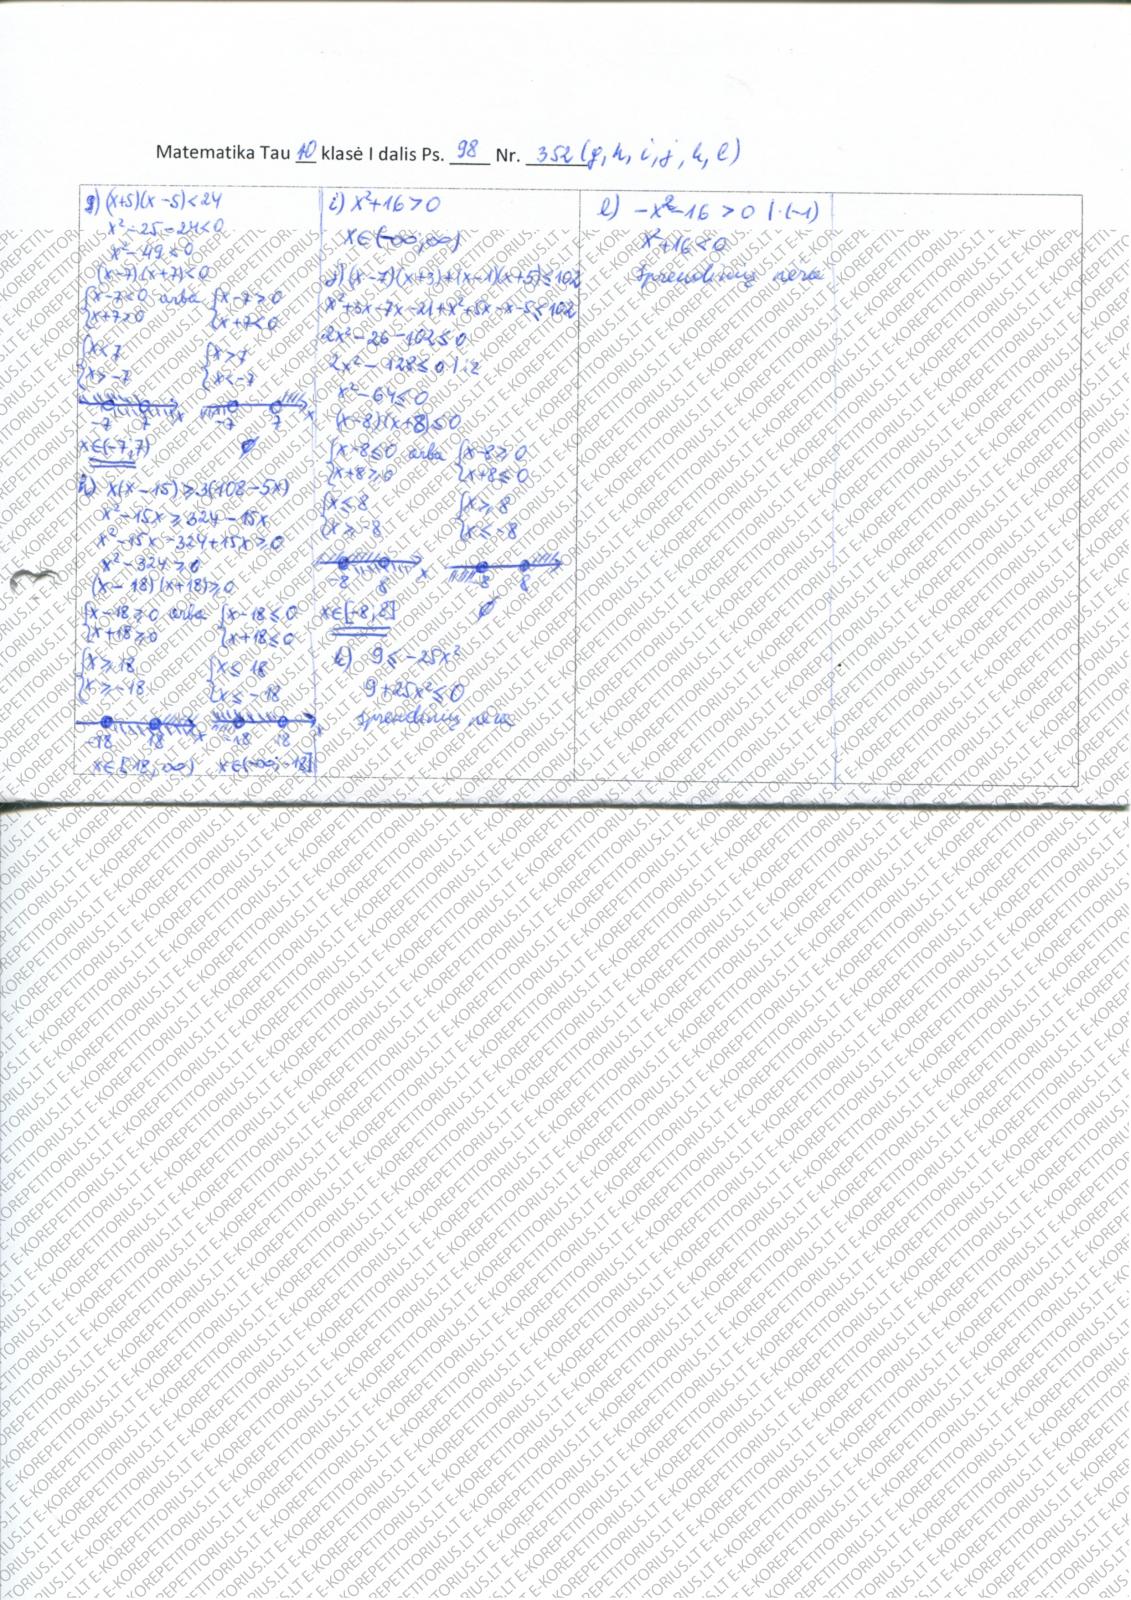 Matematika Tau 10 klasė I dalis Ps. 98 Nr. 352(g, h, i, j, k, l)
g) (x+5)(x-5)<24
x²-25-24<0
x²-49<0
(x-7)(x+7)<0
{x-7<0 arba {x-7>0
{x+7>0 {x+7<0
{x<7 {x>7
{x>-7 {x<-7
-7 7 x -7 7 x
x∈(-7;7) ∅
h) x(x-15)≥3(108-5x)
x²-15x≥324-15x
x²-15x-324+15x≥0
x²-324≥0
(x-18)(x+18)≥0
{x-18≥0 arba {x-18≤0
{x+18≥0 {x+18≤0
{x≥18 {x≤18
{x≥-18 {x≤-18
-18 18 x -18 18 x
x∈[18;∞) x∈(-∞;-18]
i) x²+16>0
x∈(-∞;∞)
j) (x-7)(x+3)+(x-1)(x+5)≤102
x²+3x-7x-21+x²+5x-x-5≤102
2x²-26-102≤0
2x²-128≤0 |:2
x²-64≤0
(x-8)(x+8)≤0
{x-8≤0 arba {x-8≥0
{x+8≥0 {x+8≤0
{x≤8 {x≥8
{x≥-8 {x≤-8
-8 8 x -8 8
x∈[-8;8] ∅
k) 9≤-25x²
9+25x²≤0
Sprendinių nėra
l) -x²-16>0 |·(-1)
x²+16<0
Sprendinių nėra
E-KOREPETITORIUS.LT